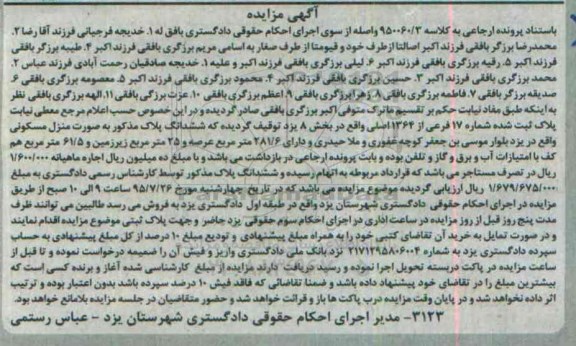 آگهی مزایده
باستناد پرونده ارجاعی به کلاسه ۹۵۰۰۶۰/۳ واصله از سوی اجرای احکام حقوقی دادگستری بافق له ۱. خدیجه فرجیانی فرزند آقا رضا ۲.
محمدرضا برزگر بافقی فرزند اکبر اصالتا از طرف خود و قیومتا از طرف صغار به اسامی مریم برزگری بافقی فرزند اکبر ۴. طیبه برزگر بافقی
فرزند اکبر ۵. رقیه برزگری بافقی فرزند اکبر ۶. لیلی برزگری بافقی فرزند اکبر و علیه ۱. خدیجه صادقیان رحمت آبادی فرزند عباس ۲.
محمد برزگری بافقی فرزند اکبر ۳. حسین برزگری بافقی فرزند اکبر ۴. محمود برزگری بافقی فرزند اکبر ۵. معصومه برزگری بافقی ۶.
صدیقه برزگر بافقی ۷. فاطمه برزگری بافقی ۸. زهرا برزگری بافقی ۹. اعظم برزگری بافقی ۱۰. عزت برزگی بافقی ۱۱. الهه برزگری بافقی نظر
به اینکه طبق مفاد نیابت حکم بر تقسیم ماترک متوفی اکبر برزگری بافقی صادر گردیده و در این خصوص حسب اعلام مرجع معطی نیابت
پلاک ثبت شده شماره ۱۷ فرعی از ۱۳۶۴ اصلی واقع در بخش ۸ یزد توقیف گردیده که ششدانگ پلاک مذکور به صورت منزل مسکونی
واقع در یزد بلوار موسی بن جعفر کوچه غفوری و ملا حیدری و دارای ۲۸۱/۶ متر مربع عرصه و ۲۵ متر مربع زیرزمین و ۶۱/۵ متر مربع هم
کف با امتیازات آب و برق و گاز و تلفن بوده و بابت پرونده ارجاعی در بازداشت می باشد و با مبلغ ده میلیون ریال اجاره ماهیانه ۱/۶۰۰/۰۰۰
ریال در تصرف مستاجر می باشد که قرارداد مربوطه به اتهام رسیده و ششدانگ پلاک مذکور توسط کارشناس رسمی دادگستری به مبلغ
۱/۶۷۹/۶۷۵/۰۰۰ ریال ارزیابی گردیده موضوع مزایده می باشد که در تاریخ چهارشنبه مورخ ۹۵/۷/۲۶ ساعت ۹ الی ۱۰ صبح از طریق
مزایده در اجرای احکام حقوقی دادگستری شهرستان یزد واقع در طبقه اول دادگستری یزد به فروش می رسد طالبین می توانند ظرف
مدت پنج روز قبل از روز مزایده در ساعت اداری در اجرای احکام سوم حقوقی یزد حاضر و جهت پلاک ثبتی موضوع مزایده اقدام نمایند
و در صورت تمایل به خرید آن تقاضای کتبی خود را به همراه مبلغ پیشنهادی و تودیع مبلغ ۱۰ درصد از کل مبلغ پیشنهادی به حساب
سپرده دادگستری یزد به شماره ۲۱۷۱۲۹۵۸۰۶۰۰۴ نزد بانک ملی دادگستری واریز و فیش آن را ضمیمه درخواست نموده و تا قبل از
ساعت مزایده در پاکت دربسته تحویل اجرا نموده و رسید دریافت دارند مزایده از مبلغ کارشناسی شده آغاز و برنده کسی است که
بیشترین مبلغ را در تقاضای خود پیشنهاد داده باشد و ضمنا تقاضائی که فاقد فیش ۱۰ درصد سپرده باشد بدون اعتبار بوده و ترتیب
اثر داده نخواهد شد و در پایان وقت مزایده درب پاکت ها باز و قرائت خواهد شد و حضور متقاضیان در جلسه مزایده بلامانع خواهد بود.
۳۱۲۳- مدیر اجرای احکام حقوقی دادگستری شهرستان یزد - عباس رستمی